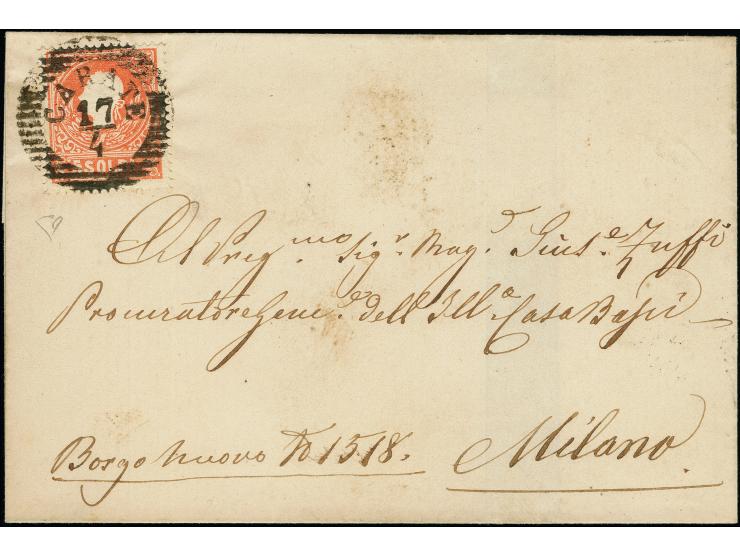 CARATE
17
4
5 SOLDI
59
Al Preg.mo Sig.r Rag.d Gius.e Zuffi
Procuratore Gene.e dell Ill.a Casa
Borgo Nuovo No 1518.
Milano.